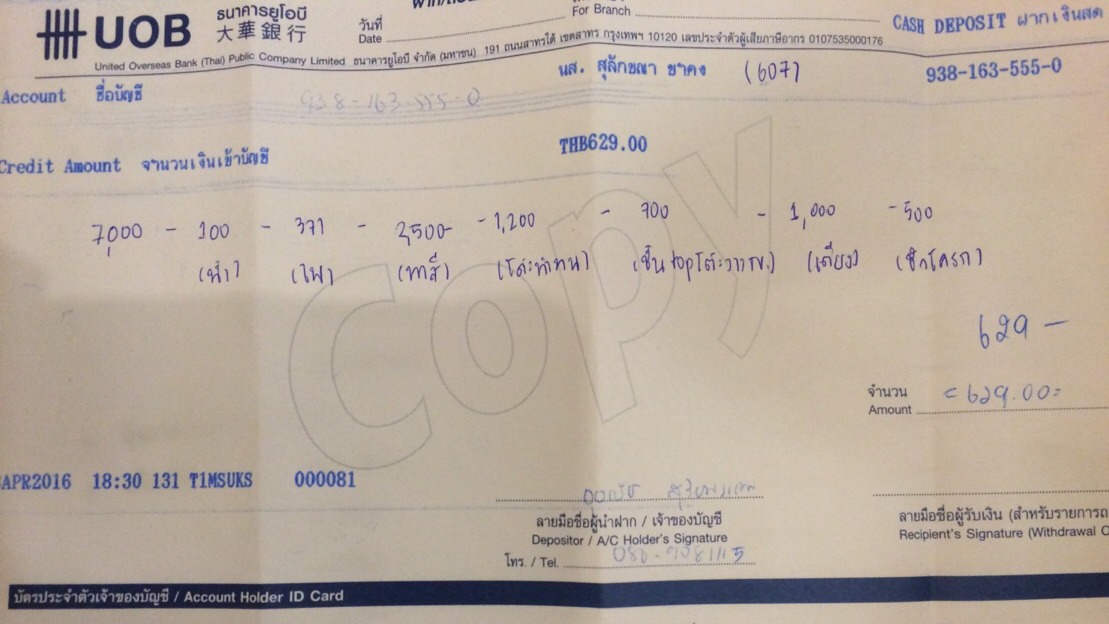 UOB ธนาคารยูโอบี
大華銀行
วันที่
Date
For Branch
CASH DEPOSIT ฝากเงินสด
United Overseas Bank (Thai) Public Company Limited ธนาคารยูโอบี จำกัด (มหาชน) 191 ถนนสาทรใต้ เขตสาทร กรุงเทพฯ 10120 เลขประจำตัวผู้เสียภาษีอากร 0107535000176
นส. สุลักขณา ขาคง (607) 938-163-555-0
Account ชื่อบัญชี
938-163-555-0
Credit Amount จำนวนเงินเข้าบัญชี THB629.00
7,000 - 100 - 371 - 2,500 - 1,200 - 700 - 1,000 - 500
(น้ำ) (ไฟ) (ทาสี) (โต๊ะทำงาน) (ชั้น top โต๊ะวาง TV.) (เตียง) (ชักโครก)
629 -
จำนวน
Amount = 629.00 =
Copy
APR2016 18:30 131 T1MSUKS 000081
ลายมือชื่อผู้นำฝาก / เจ้าของบัญชี
Depositor / A/C Holder's Signature
โทร. / Tel.
ลายมือชื่อผู้รับเงิน (สำหรับรายการถ
Recipient's Signature (Withdrawal
บัตรประจำตัวเจ้าของบัญชี / Account Holder ID Card